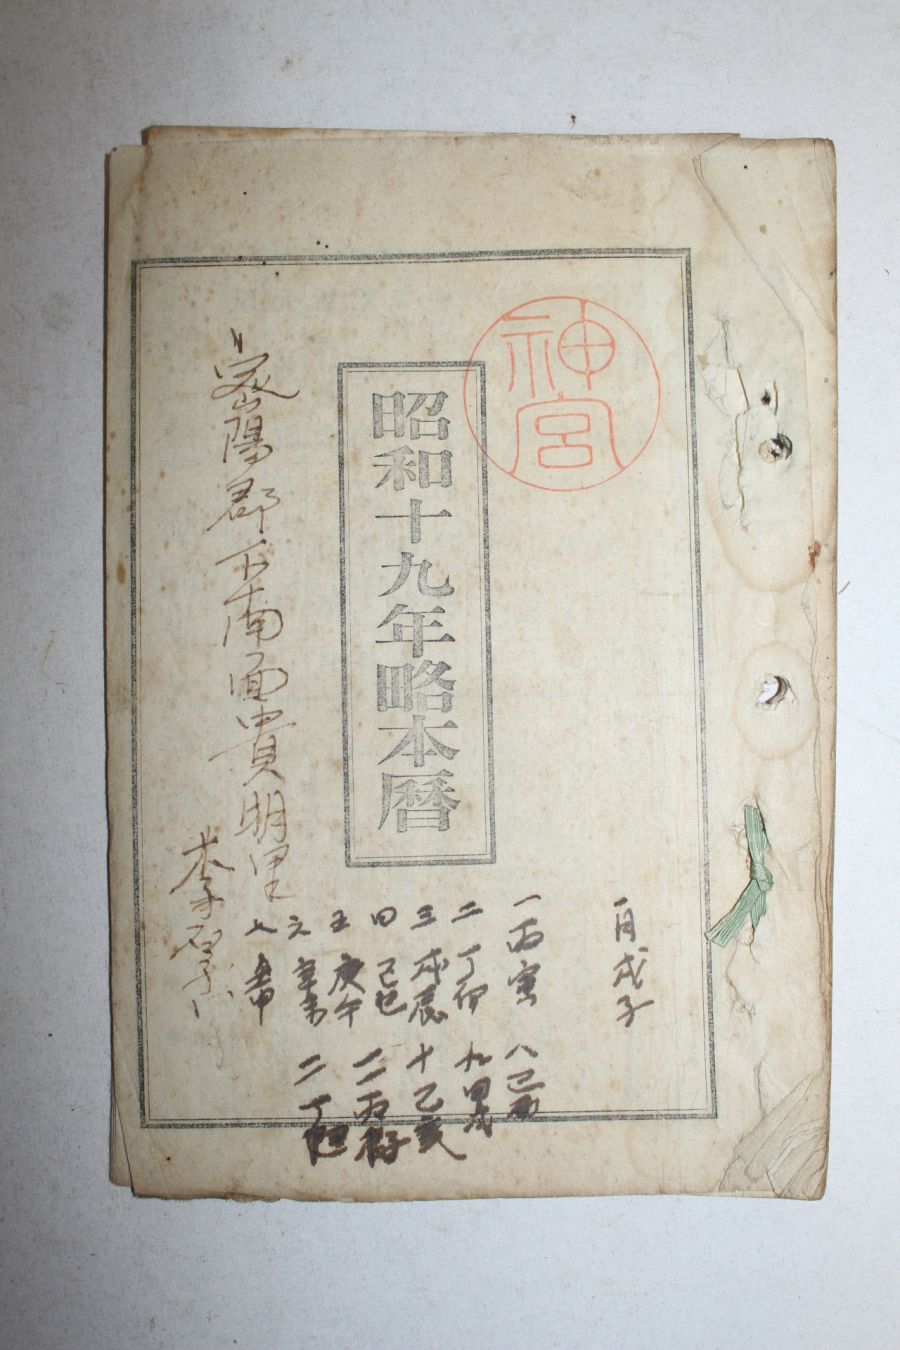 神宮
昭和十九年略本暦
密陽郡下南面貴明里
李
一月戊子
一丙寅
二丁卯
三戊辰
四己巳
五庚午
六辛未
七壬申
八己酉
九甲戌
十乙亥
二丙子
二丁丑